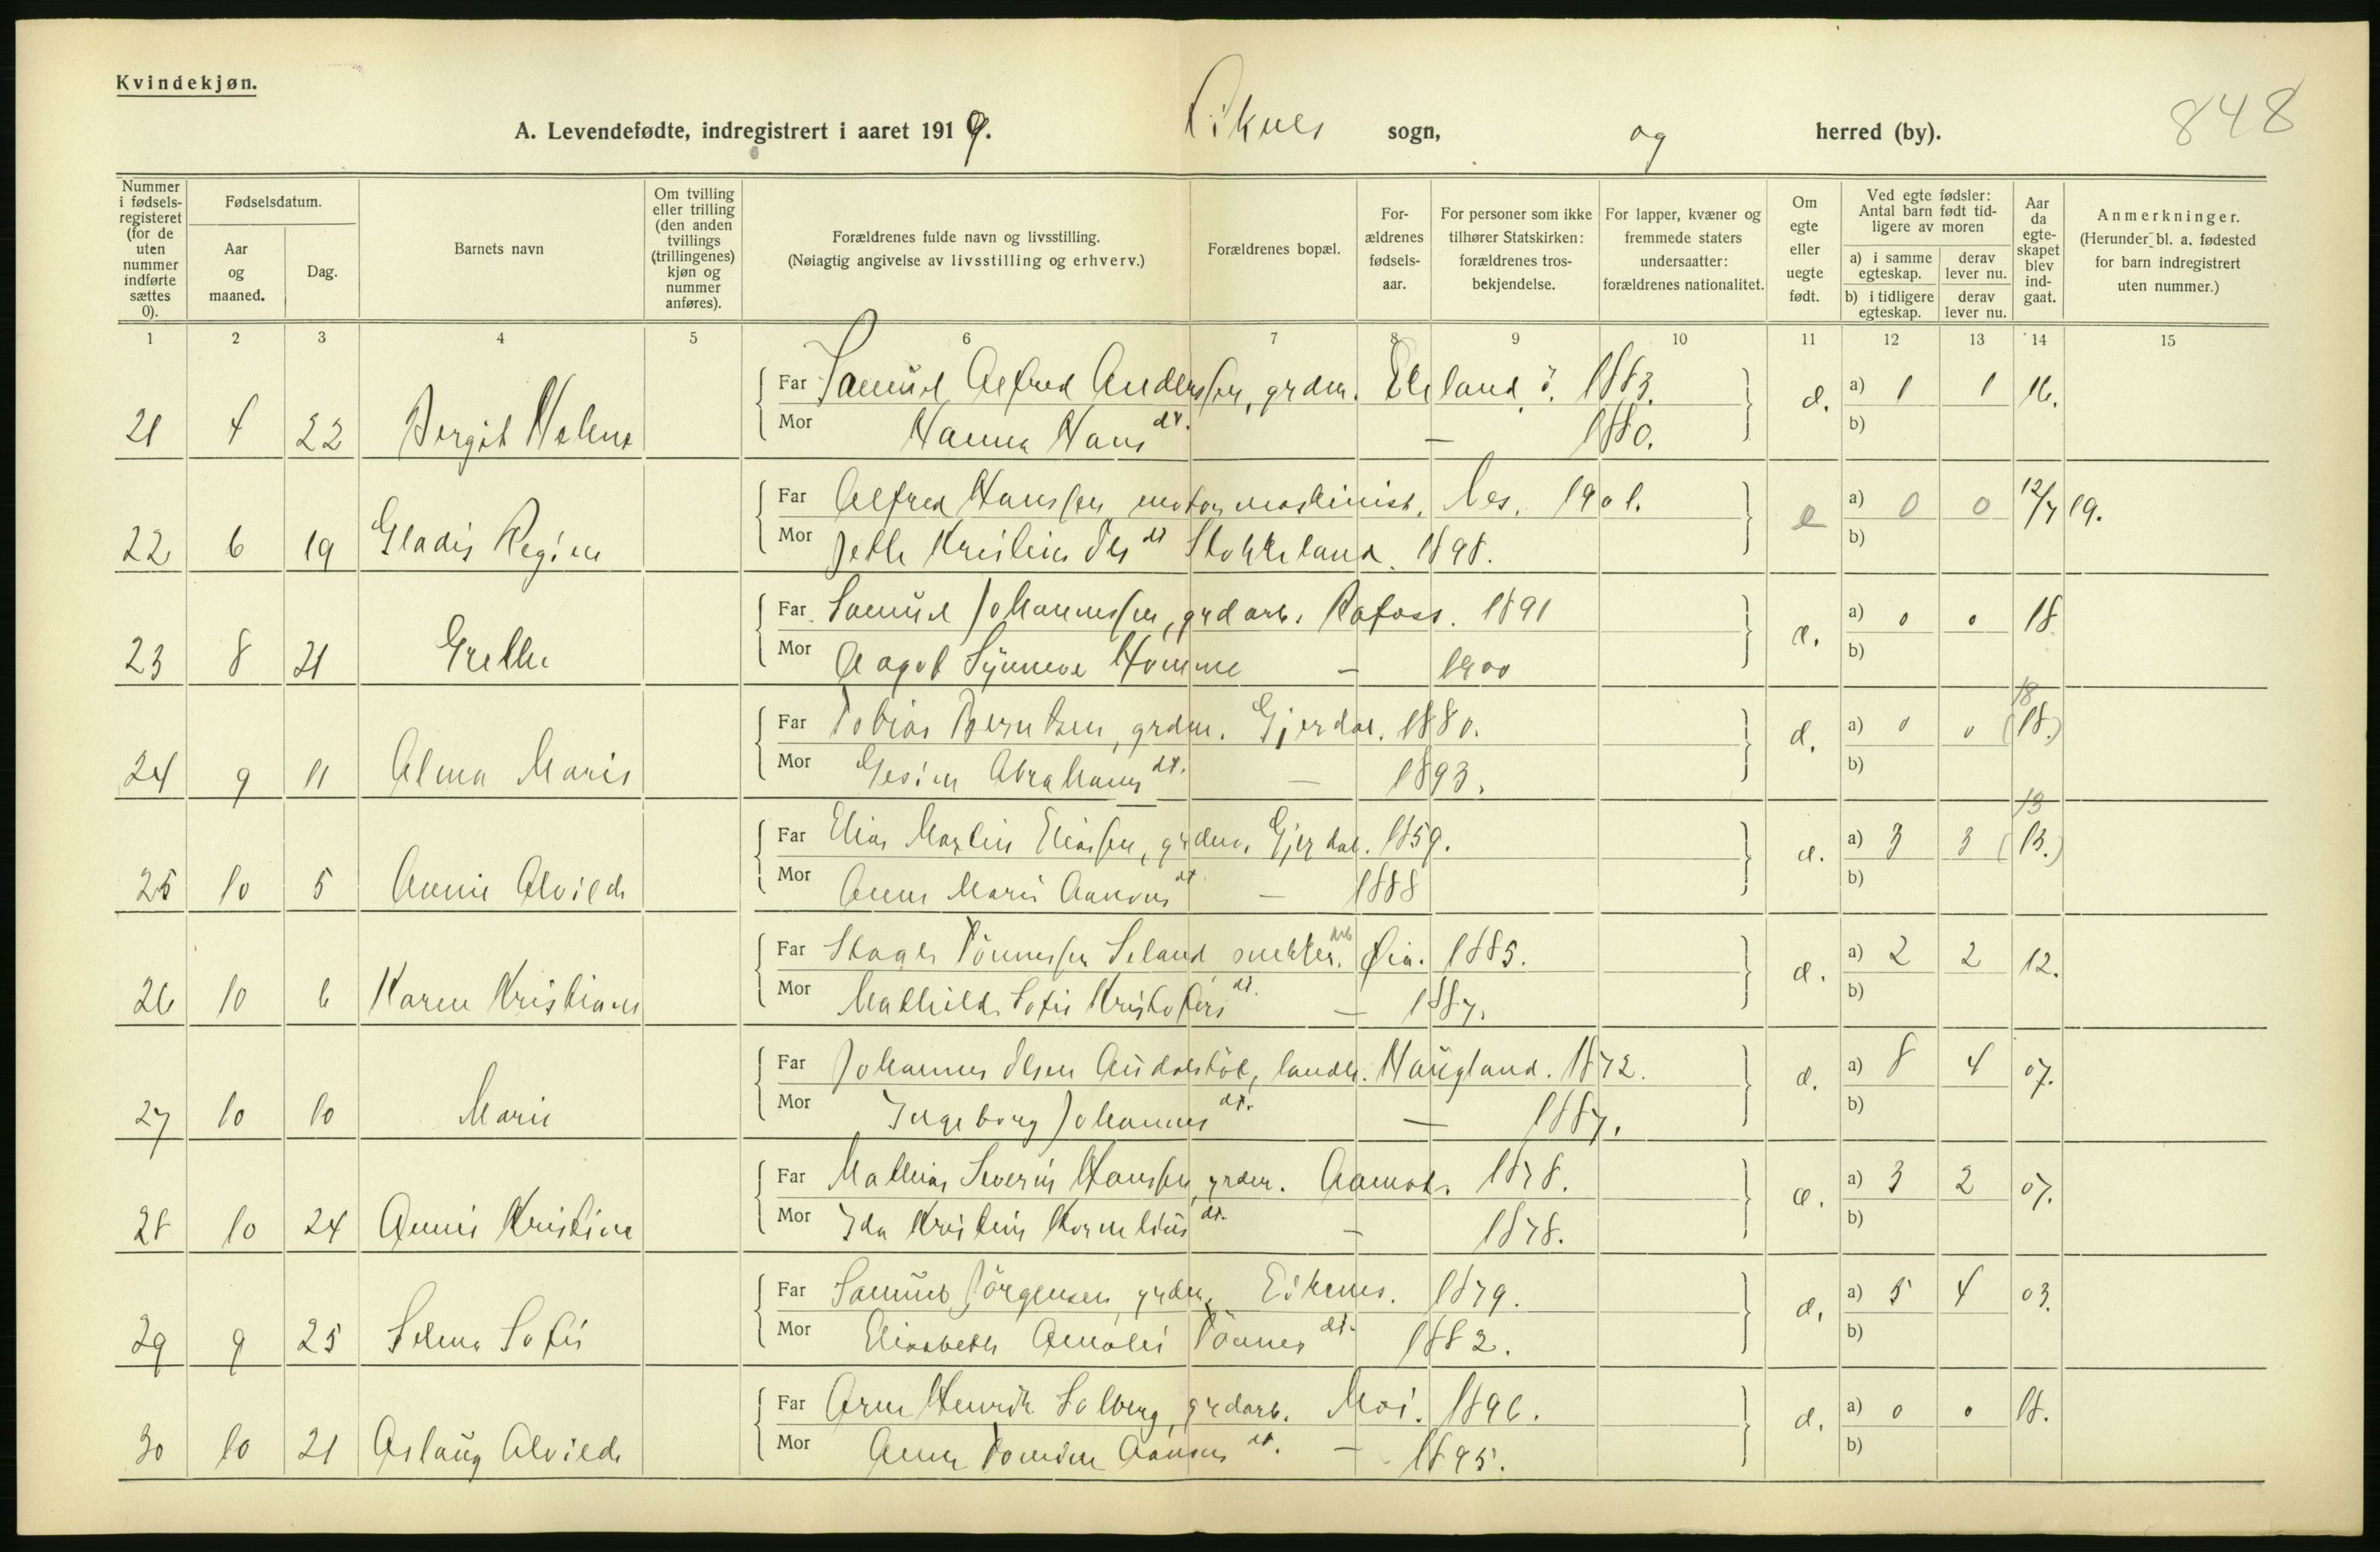 Kvindekjøn.
848
A. Levendefødte, indregistrert i aaret 1919. sogn, og herred (by).
Nummer i fødsels-registeret (for de uten nummer indførte sættes 0).
Fødselsdatum.
Aar og maaned.
Dag.
Barnets navn
Om tvilling eller trilling (den anden tvillings (trillingenes) kjøn og nummer anføres).
Forældrenes fulde navn og livsstilling.
(Nøiagtig angivelse av livsstilling og erhverv.)
Forældrenes bopæl.
For-ældrenes fødsels-aar.
For personer som ikke tilhører Statskirken: forældrenes tros-bekjendelse.
For lapper, kvæner og fremmede staters undersaatter: forældrenes nationalitet.
Om egte eller uegte født.
Ved egte fødsler: Antal barn født tid-ligere av moren
a) i samme egteskap. derav lever nu.
b) i tidligere egteskap. derav lever nu.
Aar da egte-skapet blev ind-gaat.
Anmerkninger.
(Herunder bl. a. fødested for barn indregistrert uten nummer.)
1 2 3 4 5 6 7 8 9 10 11 12 13 14 15
Far Samuel Alfred Anderssen, grdm. Eleland ö. 1883. a) 1 1 16.
21 4 22 Bergit Helene Mor Hanna Hans dt. — 1880. b)
Far Alfred Hanssen motormaskinist. Nes. 1901. e a) 0 0 12/7 19.
22 6 19 Gladis Regine Mor Stokkeland. 1898. b)
Far Samuel Johannessen, grdarb. Rafoss. 1891 a) 0 0 18
23 8 21 Grethe Mor Aagot Synneve Homme — 1900 b)
Far Tobias Berntsen, grdm. Gjerdal. 1880. a) 0 0 18 (18.)
24 9 11 Alma Marie Mor Gesine Abrahams dt. — 1893. b)
Far Elias Martin Eliassen, grdm. Gjerdal. 1859. a) 3 3 13 (13.)
25 10 5 Annie Alvilde Mor Anne Marie Aanons dt — 1888 b)
Far Tönnessen Seland snekker. arb Øia. 1885. a) 2 2 12.
26 10 6 Karen Kristiane Mor Mathilde Sofie Kristofers dt. — 1887. b)
Far Johannes Olsen landh. Haugland. 1872. a) 8 4 07.
27 10 10 Marie Mor Ingeborg Johannes dt. — 1887. b)
Far Mathias Severin Hanssen, grdm. Aamot. 1878. a) 3 2 07.
28 10 24 Annie Kristine Mor Ida Kristine Kornelius dt. — 1878. b)
Far Samuel Jörgensen, grdm. Eikenes. 1879. a) 5 4 03.
29 9 25 Selma Sofie Mor Elisabeth Amalie Tönnes dt. 1882. b)
Far Arne Henrik Solberg, grdarb. Moi. 1896. a) 0 0 18.
30 10 21 Aslaug Alvilde Mor Anne Tomine Aanons dt. — 1895. b)